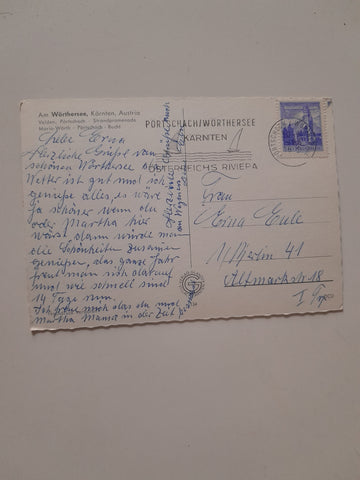 Am Wörthersee, Kärnten, Austria
Velden, Pörtschach - Strandpromenade
Maria Wörth - Pörtschach - Bucht
PÖRTSCHACH/WÖRTHERSEE
KÄRNTEN
ÖSTERREICHS RIVIERA
Liebe Erna
Herzliche Grüße vom
schönen Wörthersee das
Wetter ist gut und ich
genieße alles, es wäre
ja schöner wenn du
oder Martha hier
wärst, dann würde man
die Schönheiten zusammen
genießen, das ganze Jahr
freut man sich darauf
und wie schnell sind
14 Tage rum.
Ich freue mich das du und
Martha Mama in der Zeit
Frau
Erna Eule
1 Berlin 41
Altmarkstr 18
I Treppe